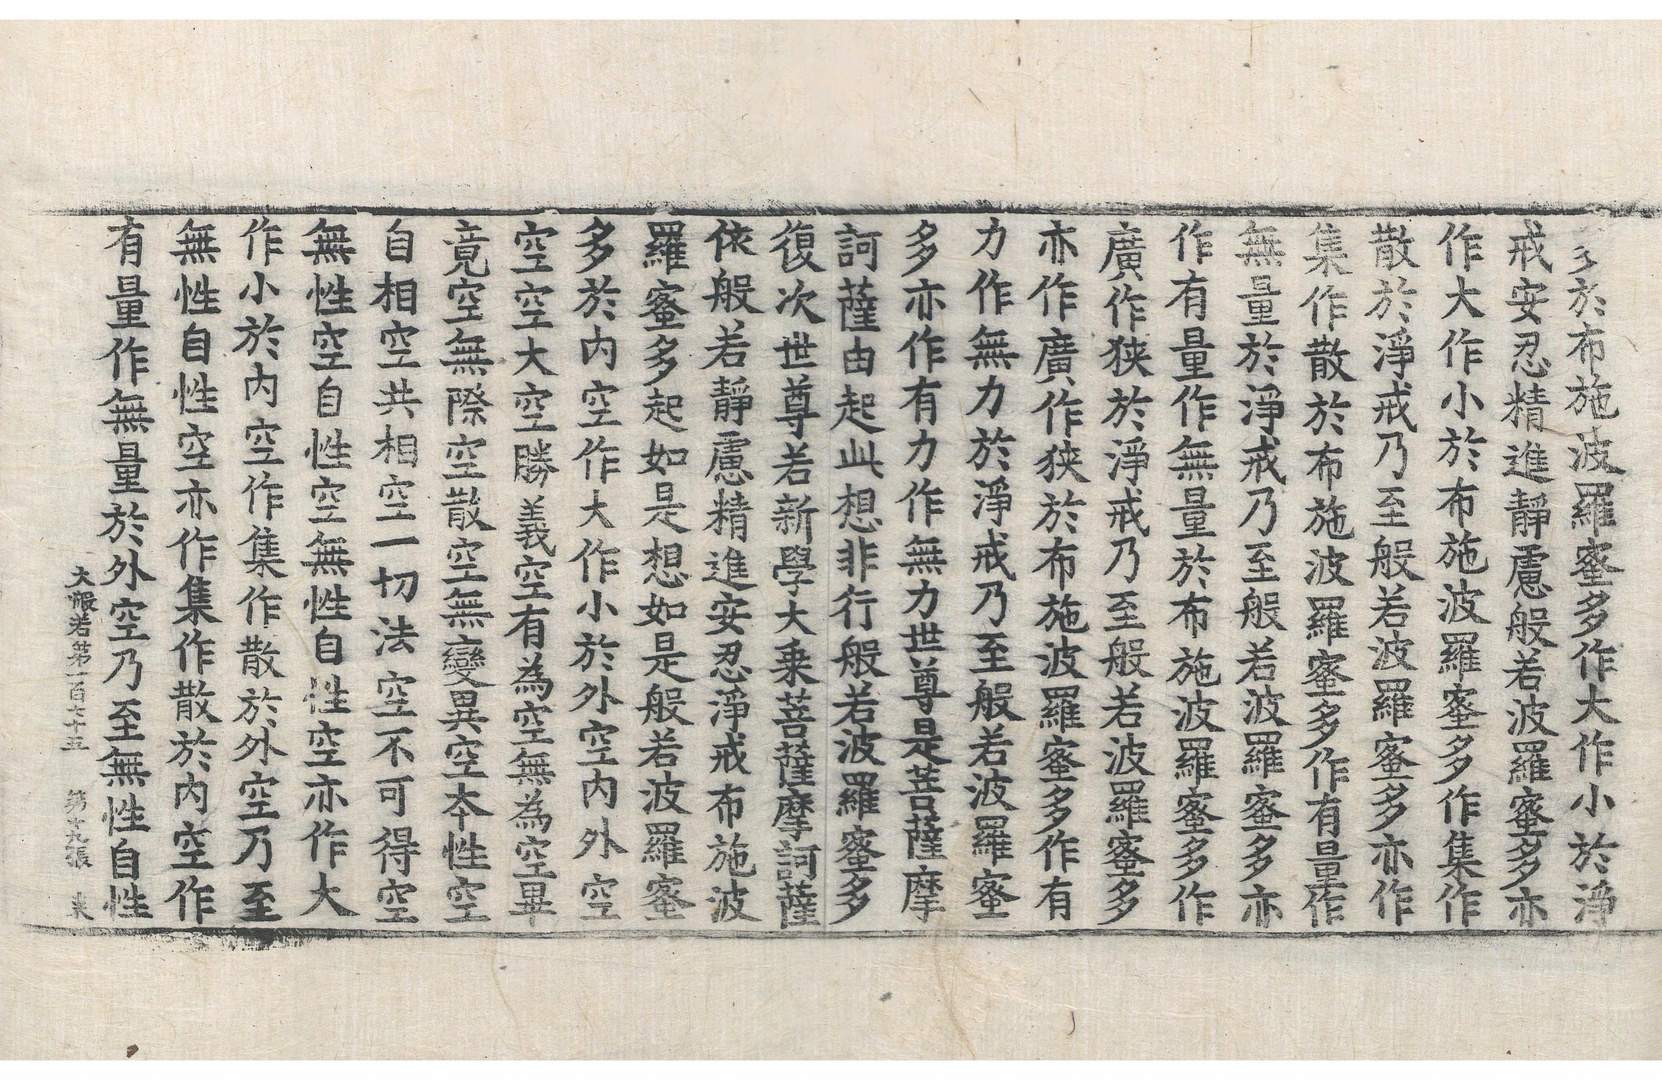 多於布施波羅蜜多作大作小於淨
戒安忍精進靜慮般若波羅蜜多亦
作大作小於布施波羅蜜多作集作
散於淨戒乃至般若波羅蜜多亦作
集作散於布施波羅蜜多作有量作
無量於淨戒乃至般若波羅蜜多亦
作有量作無量於布施波羅蜜多作
廣作狹於淨戒乃至般若波羅蜜多
亦作廣作狹於布施波羅蜜多作有
力作無力於淨戒乃至般若波羅蜜
多亦作有力作無力世尊是菩薩摩
訶薩由起此想非行般若波羅蜜多
復次世尊若新學大乗菩薩摩訶薩
依般若靜慮精進安忍淨戒布施波
羅蜜多起如是想如是般若波羅蜜
多於內空作大作小於外空內外空
空空大空勝義空有為空無為空畢
竟空無際空散空無變異空本性空
自相空共相空一切法空不可得空
無性空自性空無性自性空亦作大
作小於內空作集作散於外空乃至
無性自性空亦作集作散於內空作
有量作無量於外空乃至無性自性
大般若第一百七十五 第十九張 来